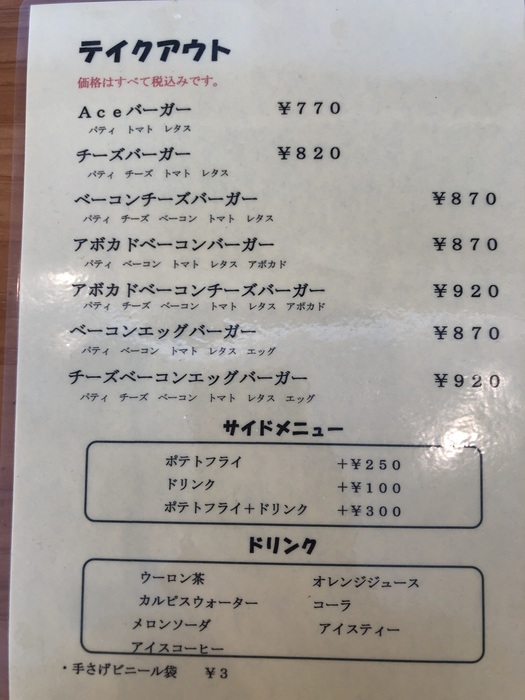 テイクアウト
価格はすべて税込みです。
Ａｃｅバーガー ￥７７０
パティ トマト レタス
チーズバーガー ￥８２０
パティ チーズ トマト レタス
ベーコンチーズバーガー ￥８７０
パティ チーズ ベーコン トマト レタス
アボカドベーコンバーガー ￥８７０
パティ ベーコン トマト レタス アボカド
アボカドベーコンチーズバーガー ￥９２０
パティ チーズ ベーコン トマト レタス アボカド
ベーコンエッグバーガー ￥８７０
パティ ベーコン トマト レタス エッグ
チーズベーコンエッグバーガー ￥９２０
パティ チーズ ベーコン トマト レタス エッグ
サイドメニュー
ポテトフライ ＋￥２５０
ドリンク ＋￥１００
ポテトフライ＋ドリンク ＋￥３００
ドリンク
ウーロン茶 オレンジジュース
カルピスウォーター コーラ
メロンソーダ アイスティー
アイスコーヒー
・手さげビニール袋 ￥３